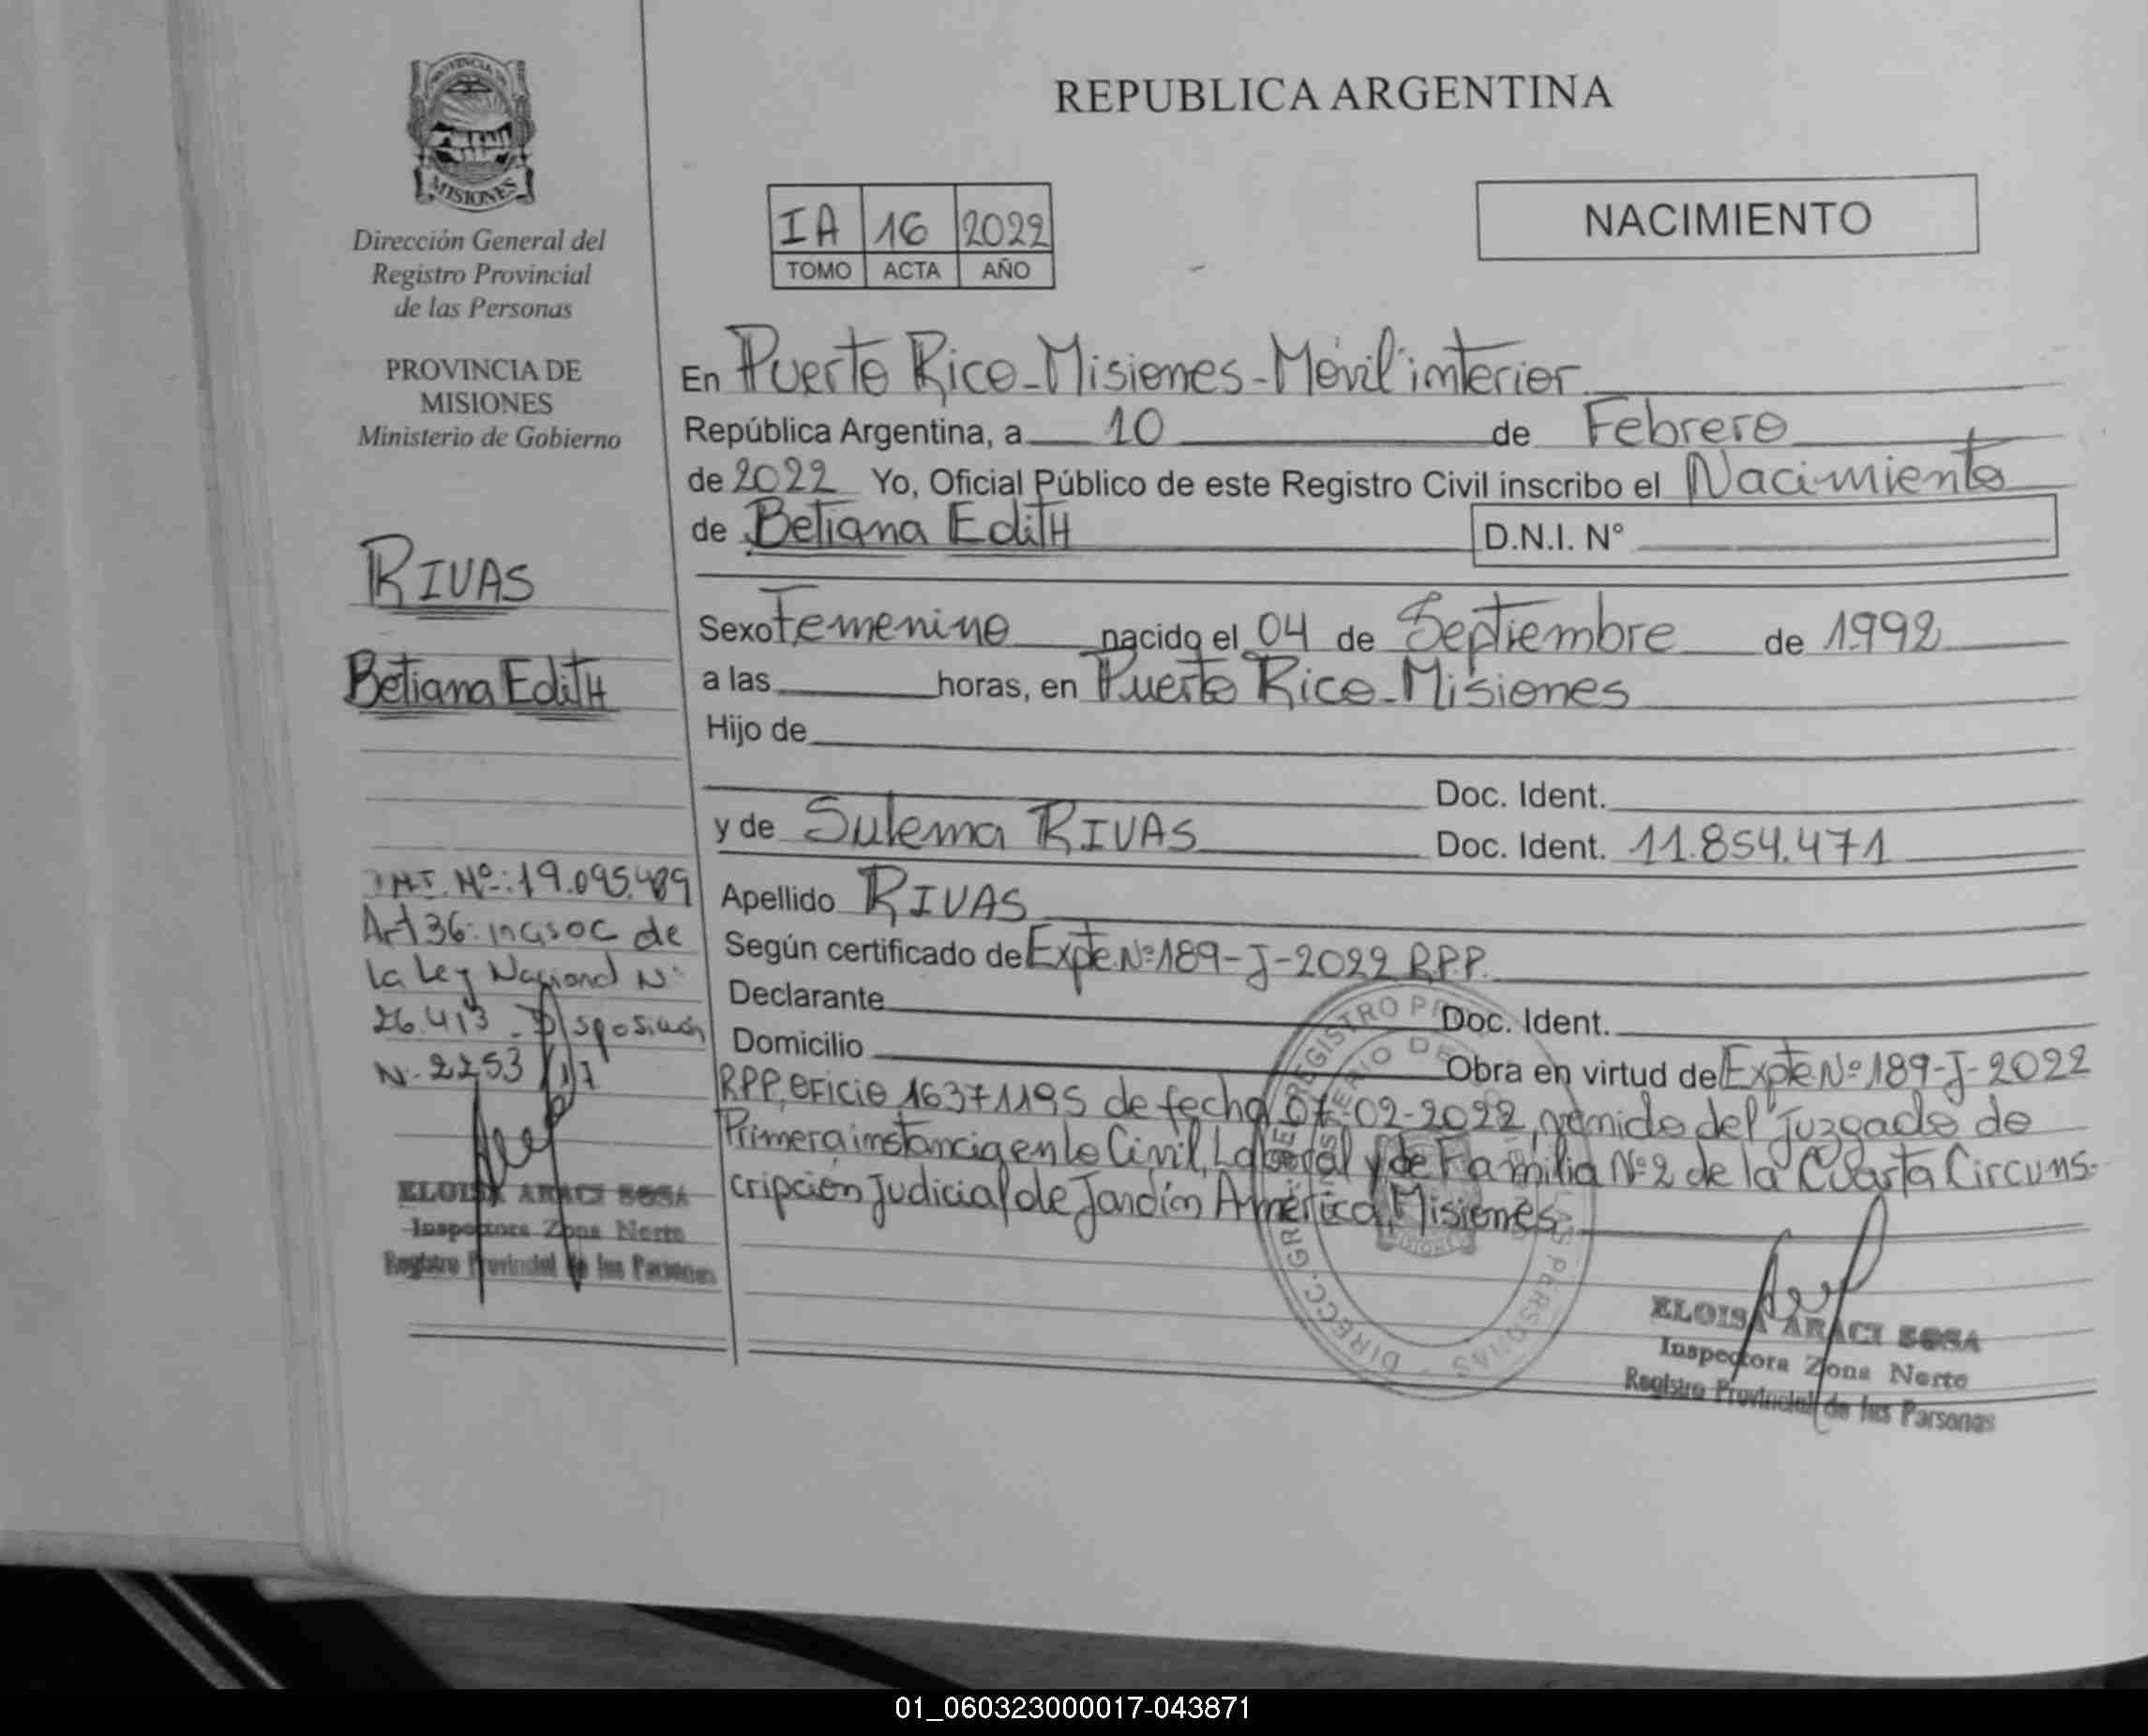 PROVINCIA DE
MISIONES
Dirección General del
Registro Provincial
de las Personas
PROVINCIA DE
MISIONES
Ministerio de Gobierno
RIVAS
Betiana EditH
Nº: 19.095.489
Art 36: inc. de
La Ley Nacional Nº
26.413 - Disposición
Nº 2253/17
ELOISA ARACI SOSA
Inspectora Zona Norte
Registro Provincial de las Personas
REPUBLICA ARGENTINA
IA 16 2022
TOMO ACTA AÑO
NACIMIENTO
En Puerto Rico-Misiones-Móvil interior
República Argentina, a 10 de Febrero
de 2022 Yo, Oficial Público de este Registro Civil inscribo el Nacimiento
de Betiana EditH D.N.I. Nº
Sexo Femenino nacido el 04 de Septiembre de 1992
a las horas, en Puerto Rico-Misiones
Hijo de
Doc. Ident.
y de Sulema RIVAS Doc. Ident. 11.854.471
Apellido RIVAS
Según certificado de Expte.Nº189-J-2022 R.P.P.
Declarante Doc. Ident.
Domicilio
Obra en virtud de Expte.Nº189-J-2022
RPP, oficio 16371195 de fecha 07-02-2022, venido del Juzgado de
Primera instancia en lo Civil, Laboral y de Familia Nº2 de la Cuarta Circuns-
cripción Judicial de Jardín América, Misiones.
ELOISA ARACI SOSA
Inspectora Zona Norte
Registro Provincial de las Personas
01_060323000017-043871